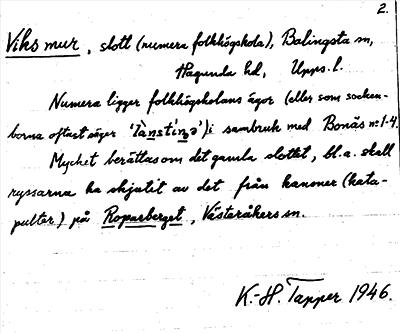 2.
Viks mur, slott (numera folkhögskola), Balingsta sn,
Hagunda hd, Upps. l.
Numera ligger folkhögskolans ägor (eller som socken-
borna oftast säger
i sambruk med Bonäs nr 1-4.
Mycket berättas om det gamla slottet, bl.a. skall
ryssarna ha skjutit av det från kanoner (kata-
pulter) på Roparberget, Västeråkers sn.
K.-H. Tapper 1946.